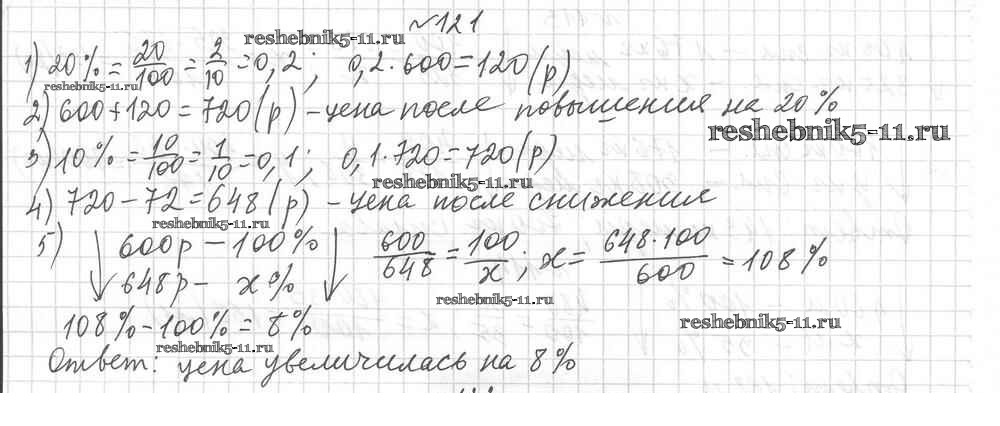 №121
reshebnik5-11.ru
1) 20% = 20/100 = 2/10 = 0,2; 0,2·600=120(р)
reshebnik5-11.ru
2) 600+120=720(р) – цена после повышения на 20%
reshebnik5-11.ru
3) 10% = 10/100 = 1/10 = 0,1; 0,1·720=720(р)
reshebnik5-11.ru
4) 720-72=648(р) – цена после снижения
reshebnik5-11.ru
5) ↓ 600р – 100% ↓ 600/648 = 100/x; x = 648·100/600 = 108%
648р – x%
reshebnik5-11.ru
108%-100% = 8%
reshebnik5-11.ru
reshebnik5-11.ru
Ответ: цена увеличилась на 8%